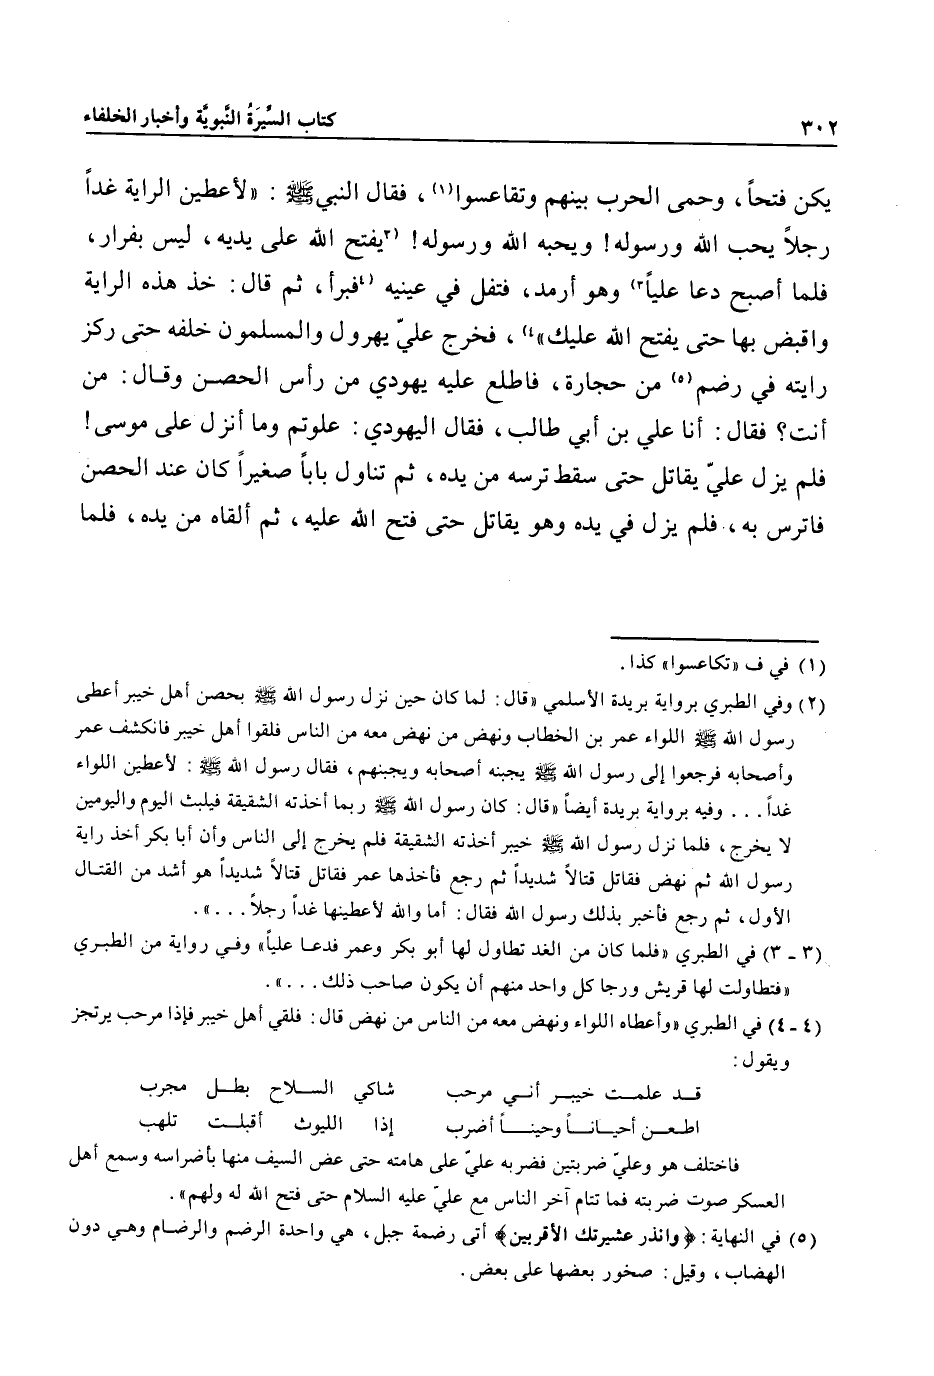 ٣٠٢
كتاب السِّيرَةُ النَّبويَّة وأخبار الخلفاء
يكن فتحاً، وحمى الحرب بينهم وتقاعسوا(١)، فقال النبي ﷺ : «لأعطين الراية غداً
رجلاً يحب الله ورسوله! ويحبه الله ورسوله! (٢يفتح الله على يديه، ليس بفرار،
فلما أصبح دعا علياً٣) وهو أرمد، فتفل في عينيه (٤فبرأ، ثم قال: خذ هذه الراية
واقبض بها حتى يفتح الله عليك»٤)، فخرج عليّ يهرول والمسلمون خلفه حتى ركز
رايته في رضم(٥) من حجارة، فاطلع عليه يهودي من رأس الحصن وقال: من
أنت؟ فقال: أنا علي بن أبي طالب، فقال اليهودي: علوتم وما أنزل على موسى!
فلم يزل عليّ يقاتل حتى سقط ترسه من يده، ثم تناول باباً صغيراً كان عند الحصن
فاترس به، فلم يزل في يده وهو يقاتل حتى فتح الله عليه، ثم ألقاه من يده، فلما
(١) في ف «تكاعسوا» كذا.
(٢) وفي الطبري برواية بريدة الأسلمي «قال: لما كان حين نزل رسول الله ﷺ بحصن أهل خيبر أعطى
رسول الله ﷺ اللواء عمر بن الخطاب ونهض من نهض معه من الناس فلقوا أهل خيبر فانكشف عمر
وأصحابه فرجعوا إلى رسول الله ﷺ يجبنه أصحابه ويجبنهم، فقال رسول الله ﷺ : لأعطين اللواء
غداً... وفيه برواية بريدة أيضاً «قال: كان رسول الله ﷺ ربما أخذته الشقيقة فيلبث اليوم واليومين
لا يخرج، فلما نزل رسول الله ﷺ خيبر أخذته الشقيقة فلم يخرج إلى الناس وأن أبا بكر أخذ راية
رسول الله ثم نهض فقاتل قتالاً شديداً ثم رجع فأخذها عمر فقاتل قتالاً شديداً هو أشد من القتال
الأول، ثم رجع فأخبر بذلك رسول الله فقال: أما والله لأعطينها غداً رجلاً...».
(٣ - ٣) في الطبري «فلما كان من الغد تطاول لها أبو بكر وعمر فدعا علياً» وفي رواية من الطبري
«فتطاولت لها قريش ورجا كل واحد منهم أن يكون صاحب ذلك...».
(٤ - ٤) في الطبري «وأعطاه اللواء ونهض معه من الناس من نهض قال: فلقي أهل خيبر فإذا مرحب يرتجز
ويقول:
قد علمت خيبر أني مرحب شاكي السلاح بطل مجرب
اطعن أحياناً وحيناً أضرب إذا الليوث أقبلت تلهب
فاختلف هو وعليّ ضربتين فضربه عليّ على هامته حتى عض السيف منها بأضراسه وسمع أهل
العسكر صوت ضربته فما تتام آخر الناس مع عليّ عليه السلام حتى فتح الله له ولهم».
(٥) في النهاية: ﴿وانذر عشيرتك الأقربين﴾ أتى رضمة جبل، هي واحدة الرضم والرضام وهي دون
الهضاب، وقيل: صخور بعضها على بعض.